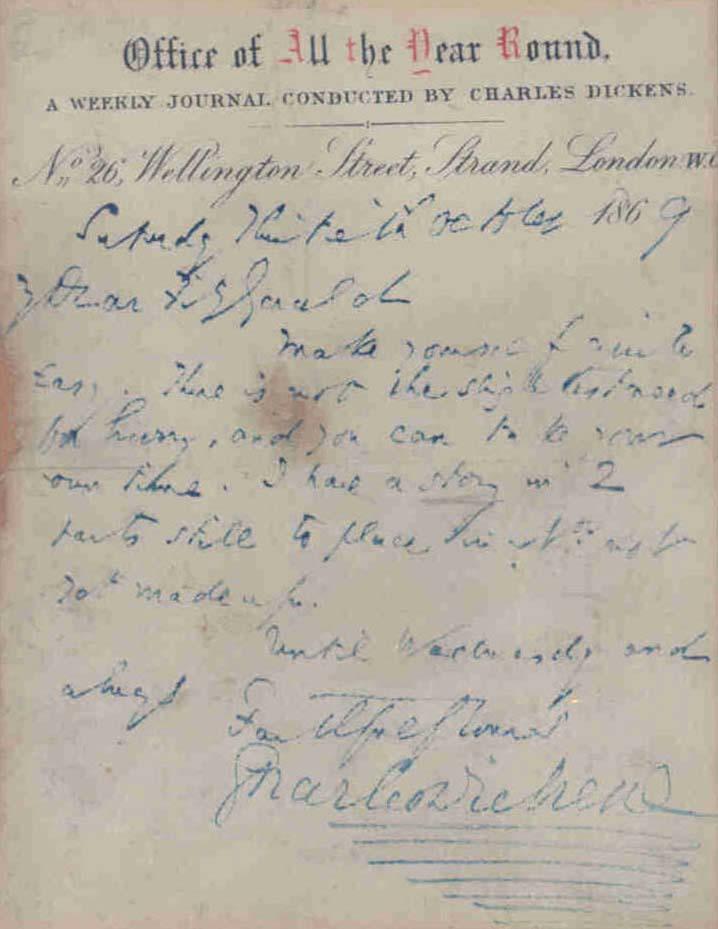 Office of All the Year Round,
A WEEKLY JOURNAL CONDUCTED BY CHARLES DICKENS.
No. 26, Wellington Street, Strand, London W.C
Saturday Thirtieth October 1869
My Dear Fitzgerald
Make yourself quite
easy. There is not the slightest need
for hurry, and you can take your
own time. I have a story in 2
parts still to place in not
yet made up.
Until Wednesday and
always
Faithfully Yours
Charles Dickens